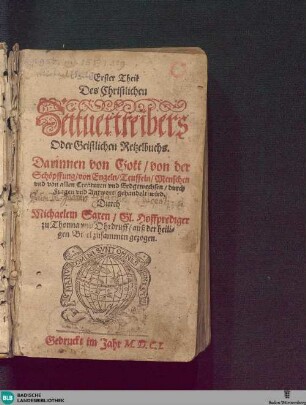 Erster Theil
Des Christlichen
Zeituertreibers
Oder Geistlichen Retzelbuchs.
Darinnen von Gott / von der
Schöpffung / von Engeln / Teuffeln / Menschen
und von allen Creaturen und Erdgewechsen / durch
Fragen und Antwort gehandelt wird,
Durch
Michaelem Saxen / Gl. Hoffprediger
zu Thonna und Ohrdruff / auß der heili-
gen Bibel zusammen gezogen.
Gedruckt im Jahr M. D. C I.
BLB BADISCHE LANDESBIBLIOTHEK
Baden-Württemberg